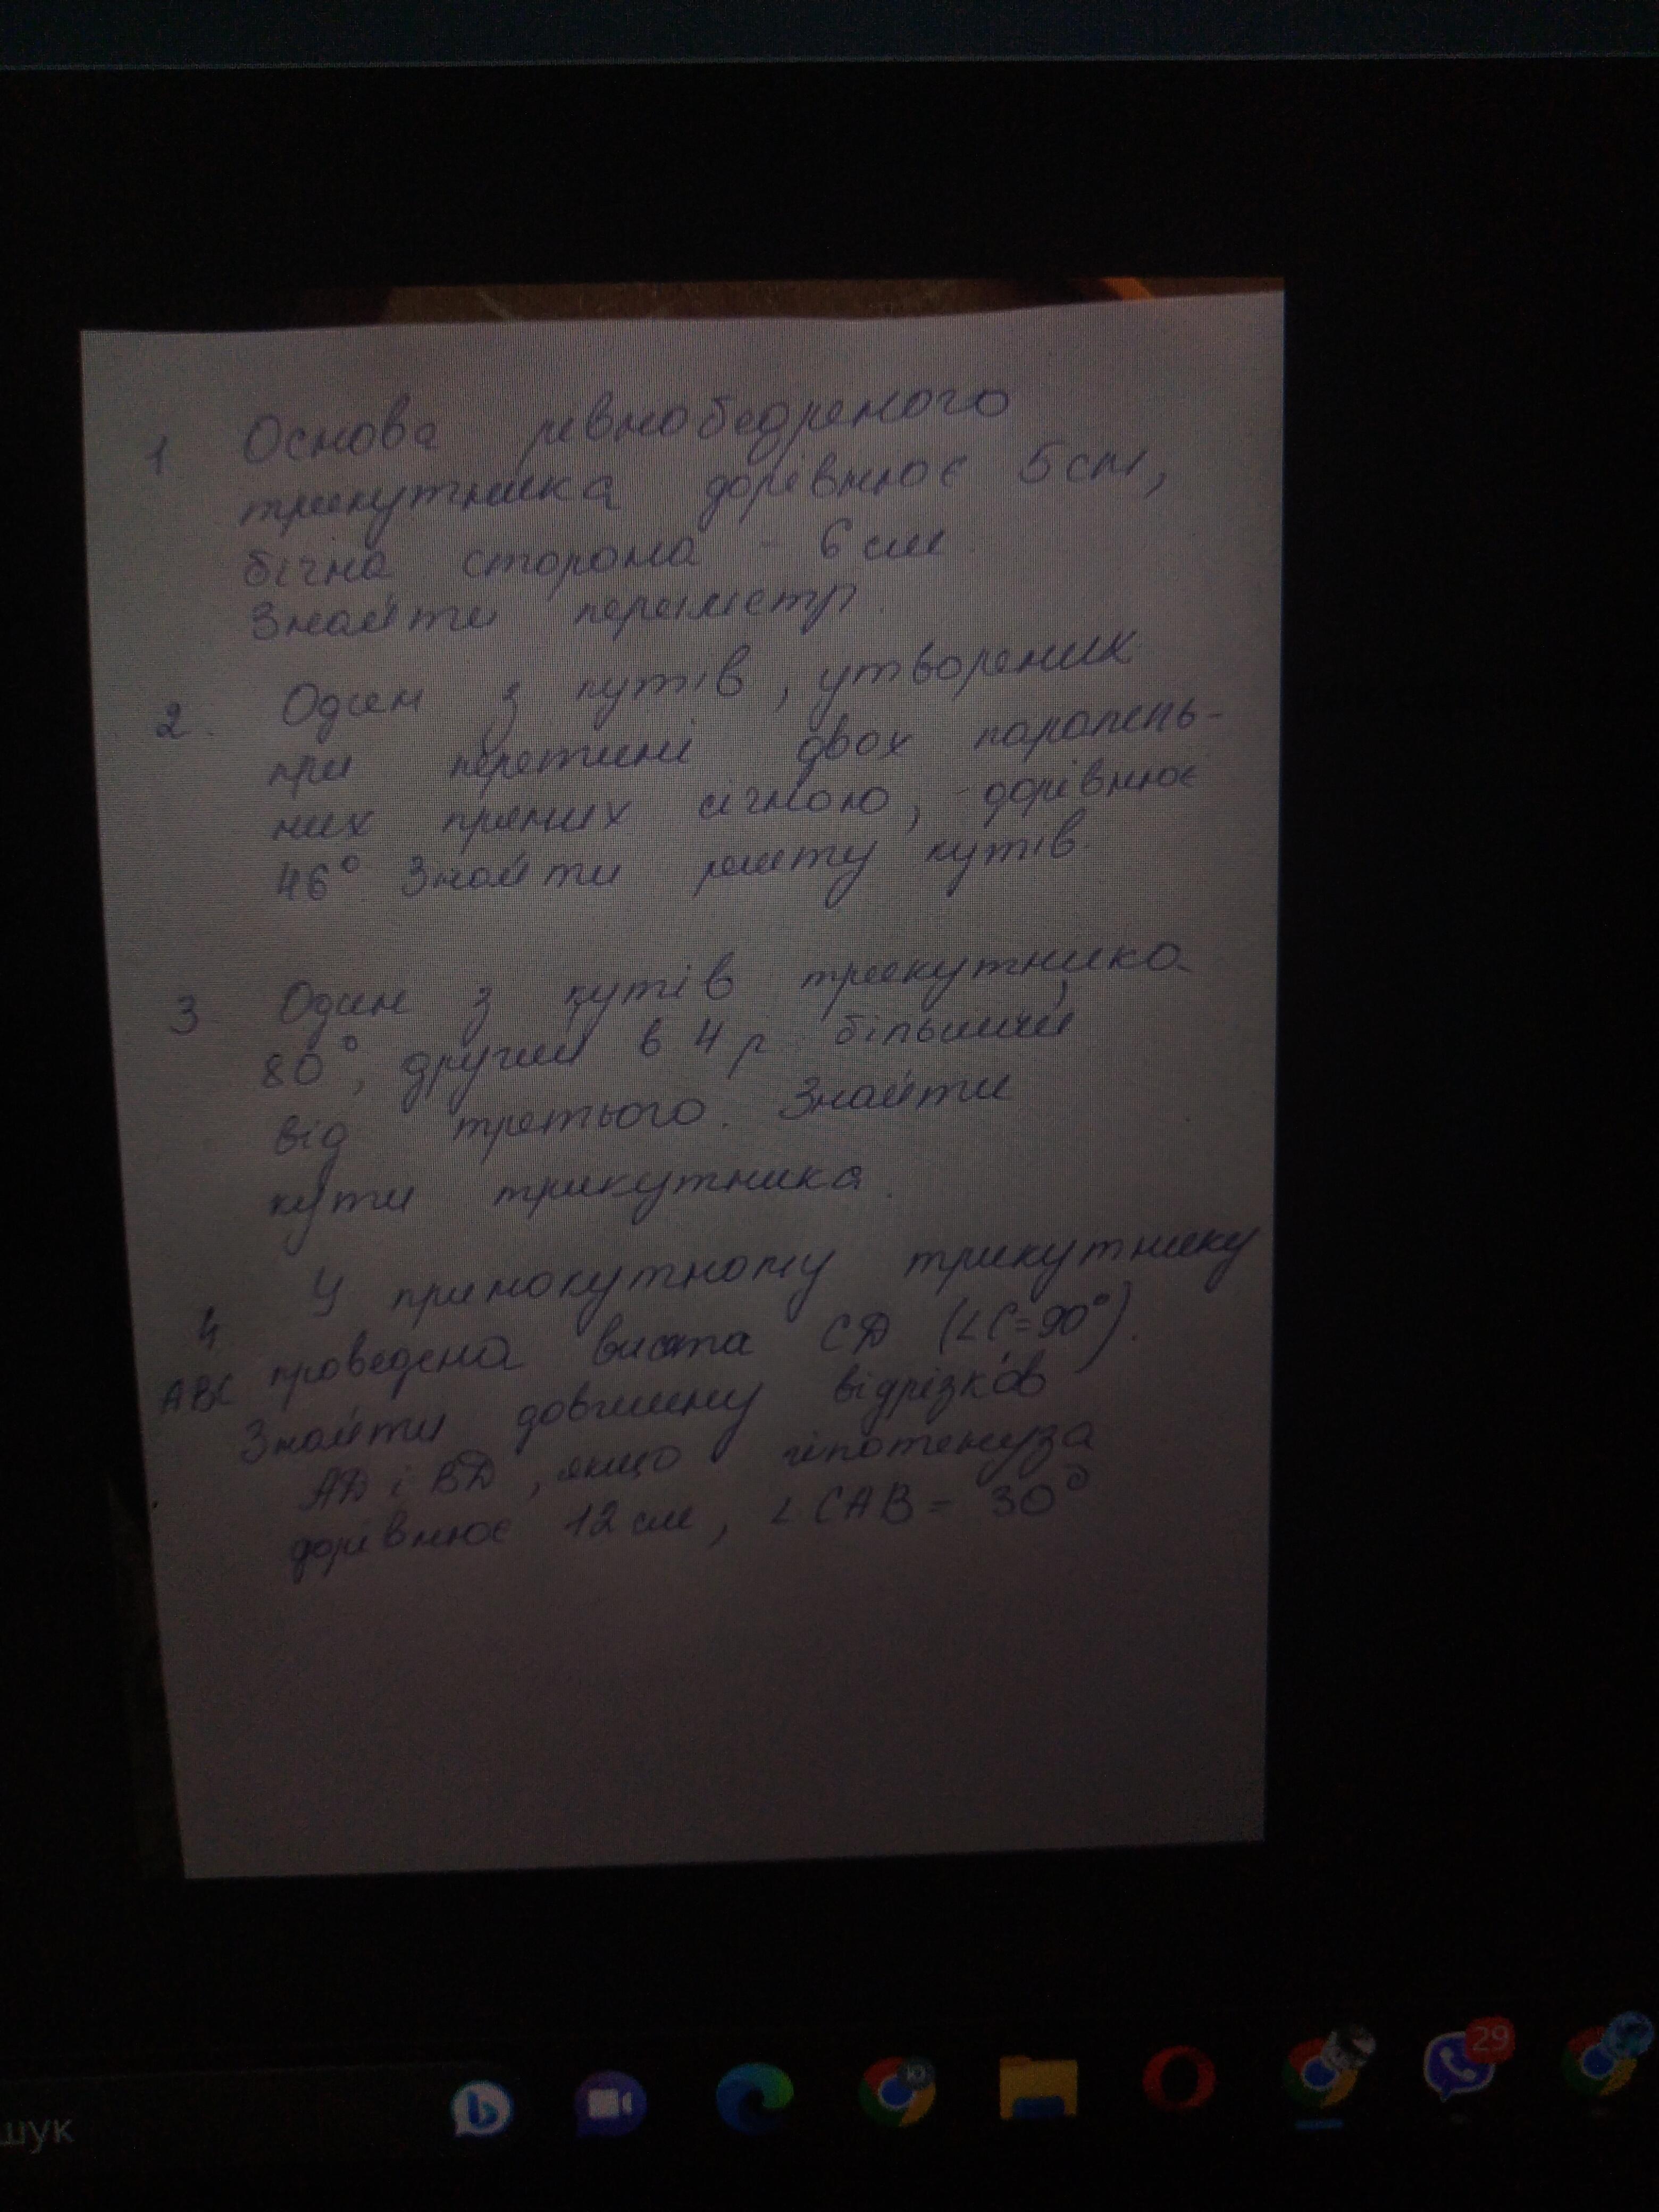 1 Основа рівнобедреного
трикутника дорівнює 5 см,
бічна сторона - 6 см
Знайти периметр.
2. Один з кутів, утворених
при перетині двох паралель-
них прямих січною, дорівнює
46° Знайти решту кутів.
3 Один з кутів трикутника
80°, другий в 4 р більший
від третього. Знайти
кути трикутника.
4 У прямокутному трикутнику
ABC проведена висота CD (∠C=90°).
Знайти довжину відрізків
AD і BD, якщо гіпотенуза
дорівнює 12 см, ∠CAB = 30°
шук
29